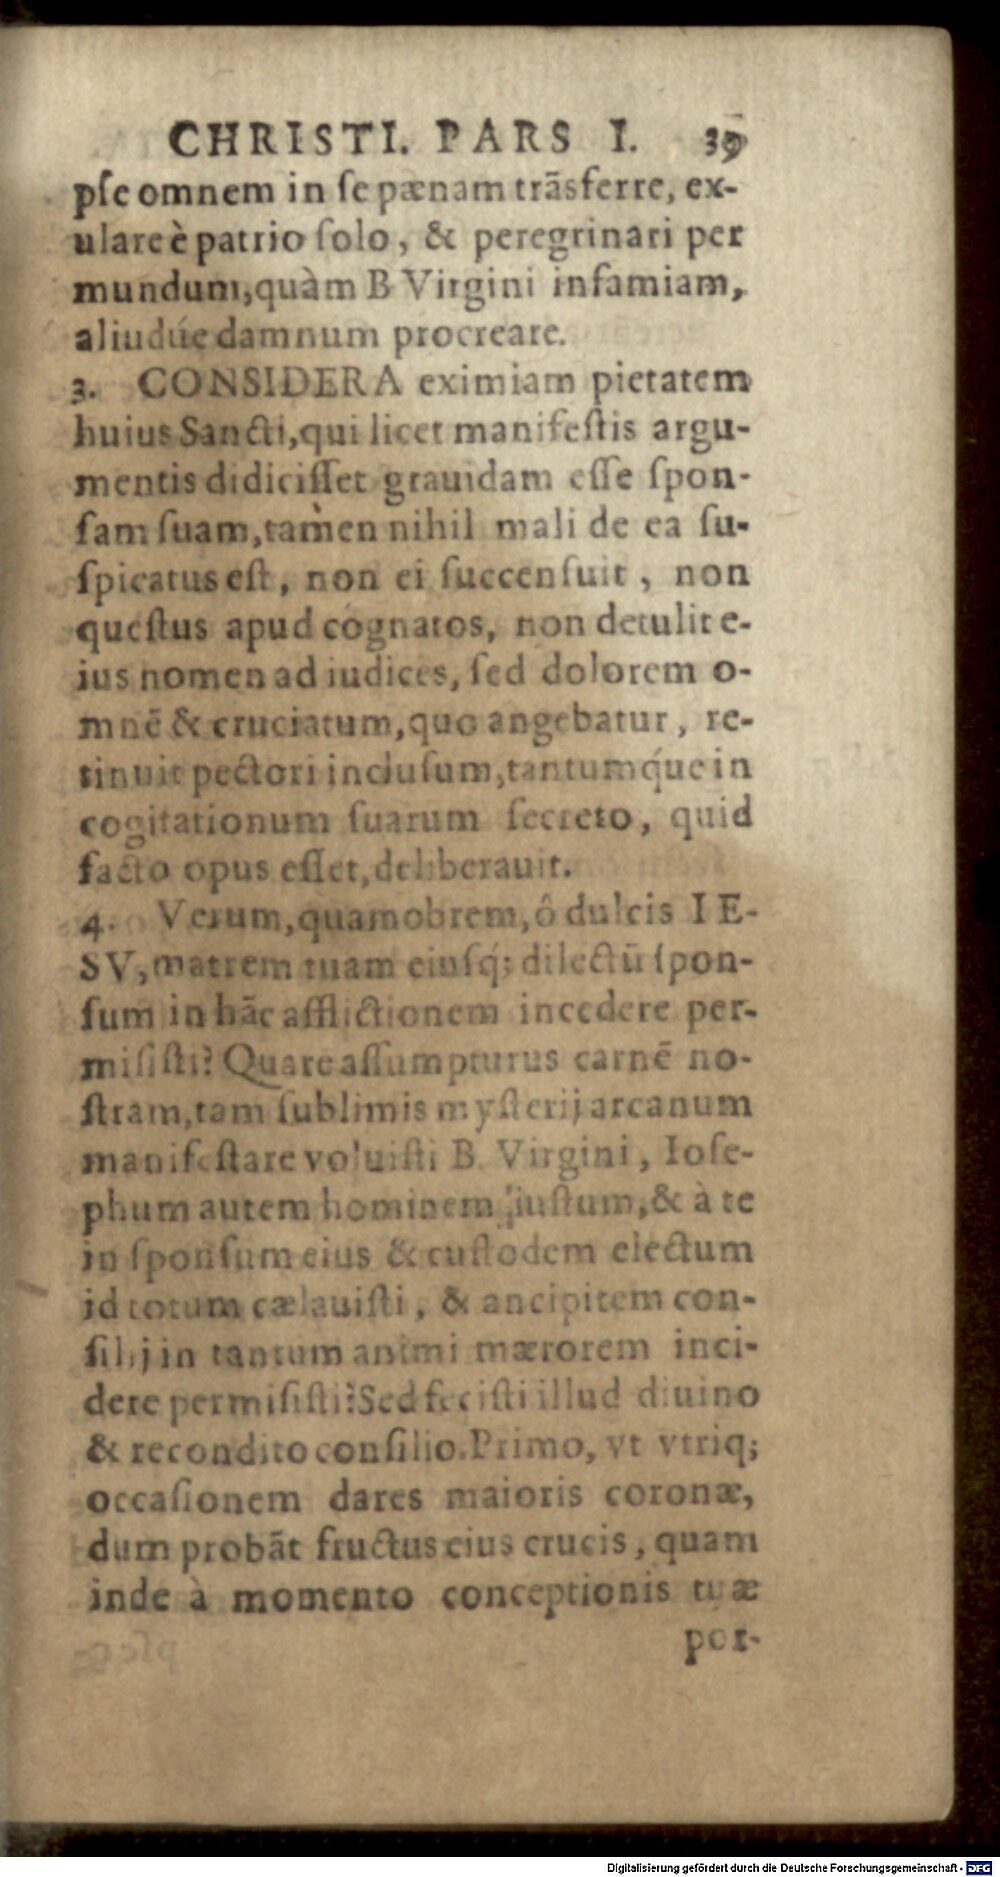 CHRISTI. PARS I. 39
pſe omnem in ſe pænam trãsferre, ex-
ulare è patrio ſolo, & peregrinari per
mundum, quàm B Virgini infamiam,
aliudúe damnum procreare.
3. CONSIDERA eximiam pietatem
huius Sancti, qui licet manifeſtis argu-
mentis didiciſſet grauidam eſſe ſpon-
ſam ſuam, tamen nihil mali de ea ſu-
ſpicatus eſt, non ei ſuccenſuit, non
queſtus apud cognatos, non detulit e-
ius nomen ad iudices, ſed dolorem o-
mnẽ & cruciatum, quo angebatur, re-
tinuit pectori incluſum, tantumq́ue in
cogitationum ſuarum ſecreto, quid
facto opus eſſet, deliberauit.
4. Verum, quamobrem, ô dulcis IE-
SV, matrem tuam eiuſq́; dilectũ ſpon-
ſum in hãc afflictionem incedere per-
miſiſti? Quare aſſumpturus carnẽ no-
ſtram, tam ſublimis myſterij arcanum
manifeſtare voluiſti B. Virgini, Ioſe-
phum autem hominem iuſtum, & à te
in ſponſum eius & cuſtodem electum
id totum cælauiſti, & ancipitem con-
ſilij in tantum animi mærorem inci-
dere permiſiſti? Sed feciſti illud diuino
& recondito conſilio. Primo, vt vtriq;
occaſionem dares maioris coronæ,
dum probãt fructus eius crucis, quam
inde à momento conceptionis tuæ
por-
Digitalisierung gefördert durch die Deutsche Forschungsgemeinschaft - DFG